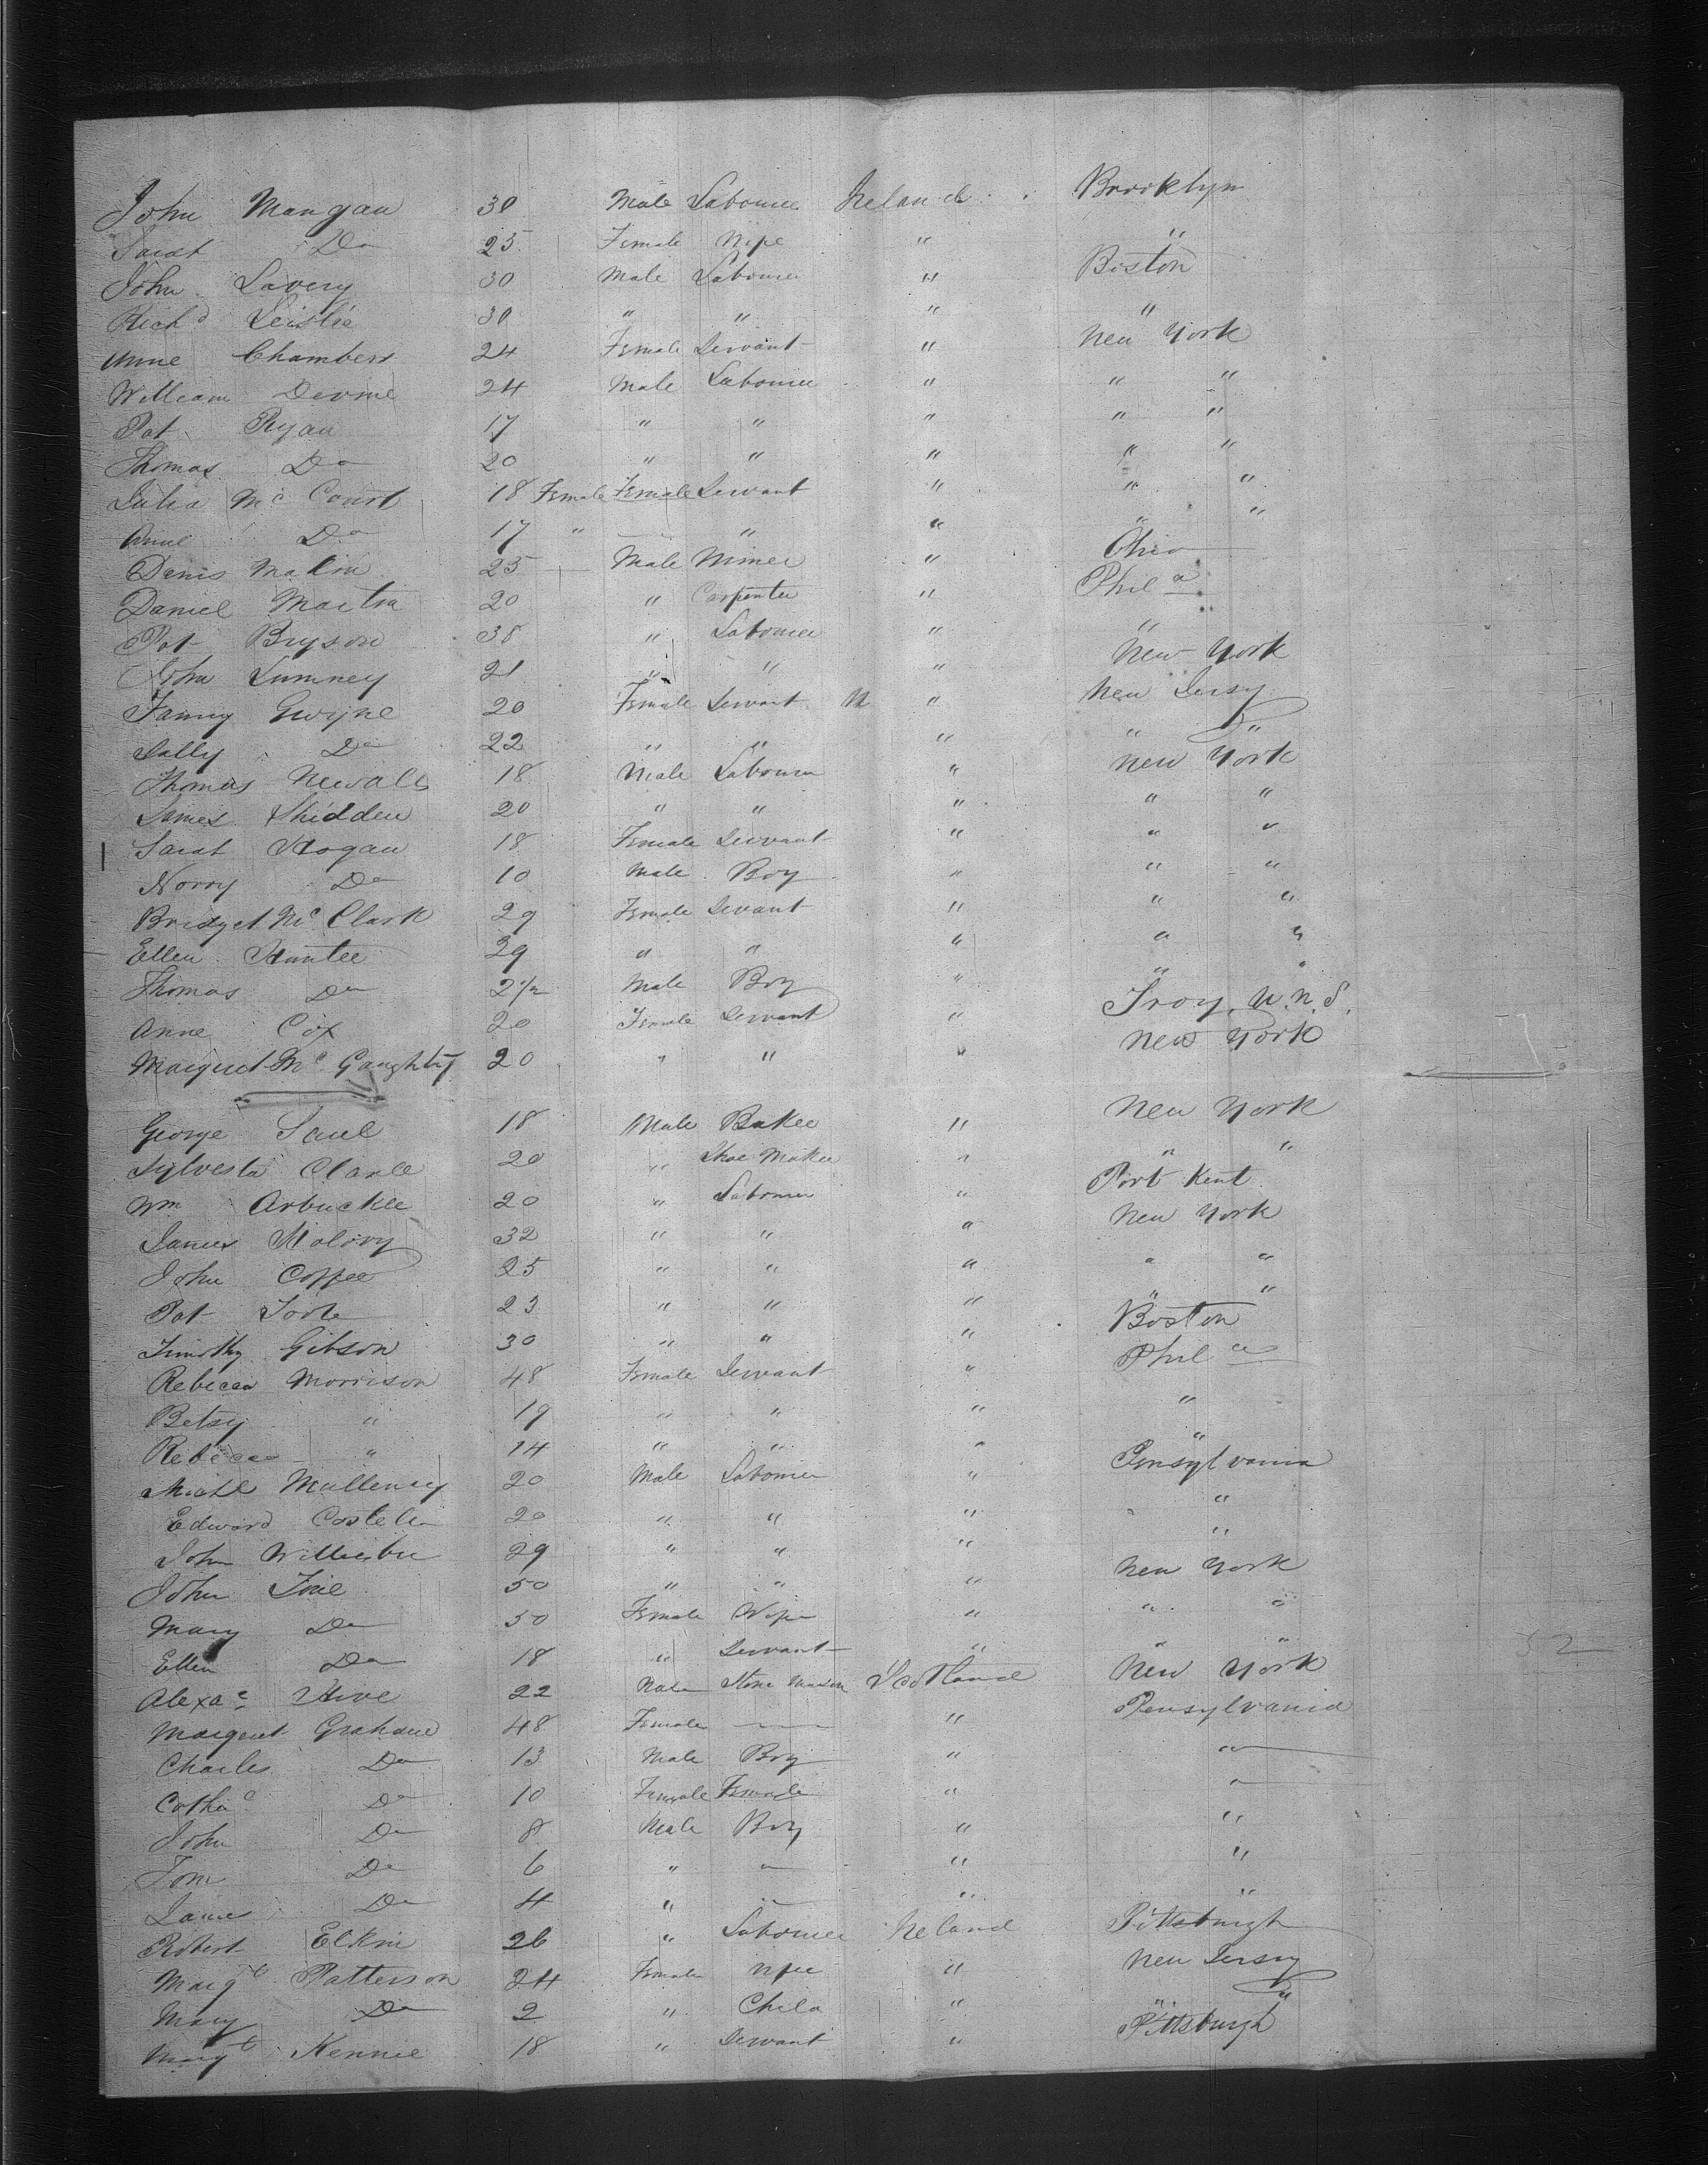 John Mangan 30 Male Labourer Ireland Brooklyn
Sarah Do 25 Female Wife " "
John Lavery 30 Male Labourer " Boston
Richd Leislie 30 " " " "
Anne Chambers 24 Female Servant " New York
William Devine 24 Male Labourer " " "
Pat Ryan 17 " " " " "
Thomas Do 20 " " " " "
Julia Mc Court 18 Female Female Servant " " "
Anne Do 17 " — " " " "
Denis Makin 25 Male Miner " Ohio
Daniel Martin 20 " Carpenter " Phila
Pat Bryson 38 " Labourer " "
John Lumney 21 " " " New York
Fanny Gwyne 20 Female Servant " New Jersy
Sally Do 22 " " " " "
Thomas Newall 18 Male Labourer " New York
James Skidden 20 " " " " "
Sarah Hogan 18 Female Servant " " "
Norry Do 10 Male Boy " " "
Bridget Mc Clark 29 Female Servant " " "
Ellen Hunter 29 " " " " "
Thomas Do 2 1/2 Male Boy " " "
Anne Cox 20 Female Servant " Troy, U.N.S.
Margret Mc Gaughty 20 " " " New York
George Saul 18 Male Baker " New York
Sylvester Clarke 20 " Shoe Maker " " "
Wm Arbuckle 20 " Labourer " Port Kent
James Molovy 32 " " " New York
John Coffee 25 " " " " "
Pat Toole 23 " " " " "
Timothy Gibson 30 " " " Boston
Rebecca Morrison 48 Female Servant " Phila
Betsy " 19 " " " "
Rebecca " 14 " " " "
Michl Mullenay 20 Male Labourer " Pensylvania
Edward Costelo 20 " " " "
John 29 " " " "
John 50 " " " New York
Mary Do 50 Female Wife " " "
Ellen Do 18 " Servant " " "
Alexa Hive 22 Male Stone Mason Scotland New York
Margret Grahame 48 Female — " Pensylvania
Charles Do 13 Male Boy " "
Cathe Do 10 Female Female " "
John Do 8 Male Boy " "
Tom Do 6 " " " "
James Do 4 " " " "
Robert Elkin 26 " Labourer Ireland Pittsburgh
Margt Patterson 24 Female Wife " New Jersy
Mary Do 2 " Child " " "
Margt Kennie 18 " Servant " Pittsburgh